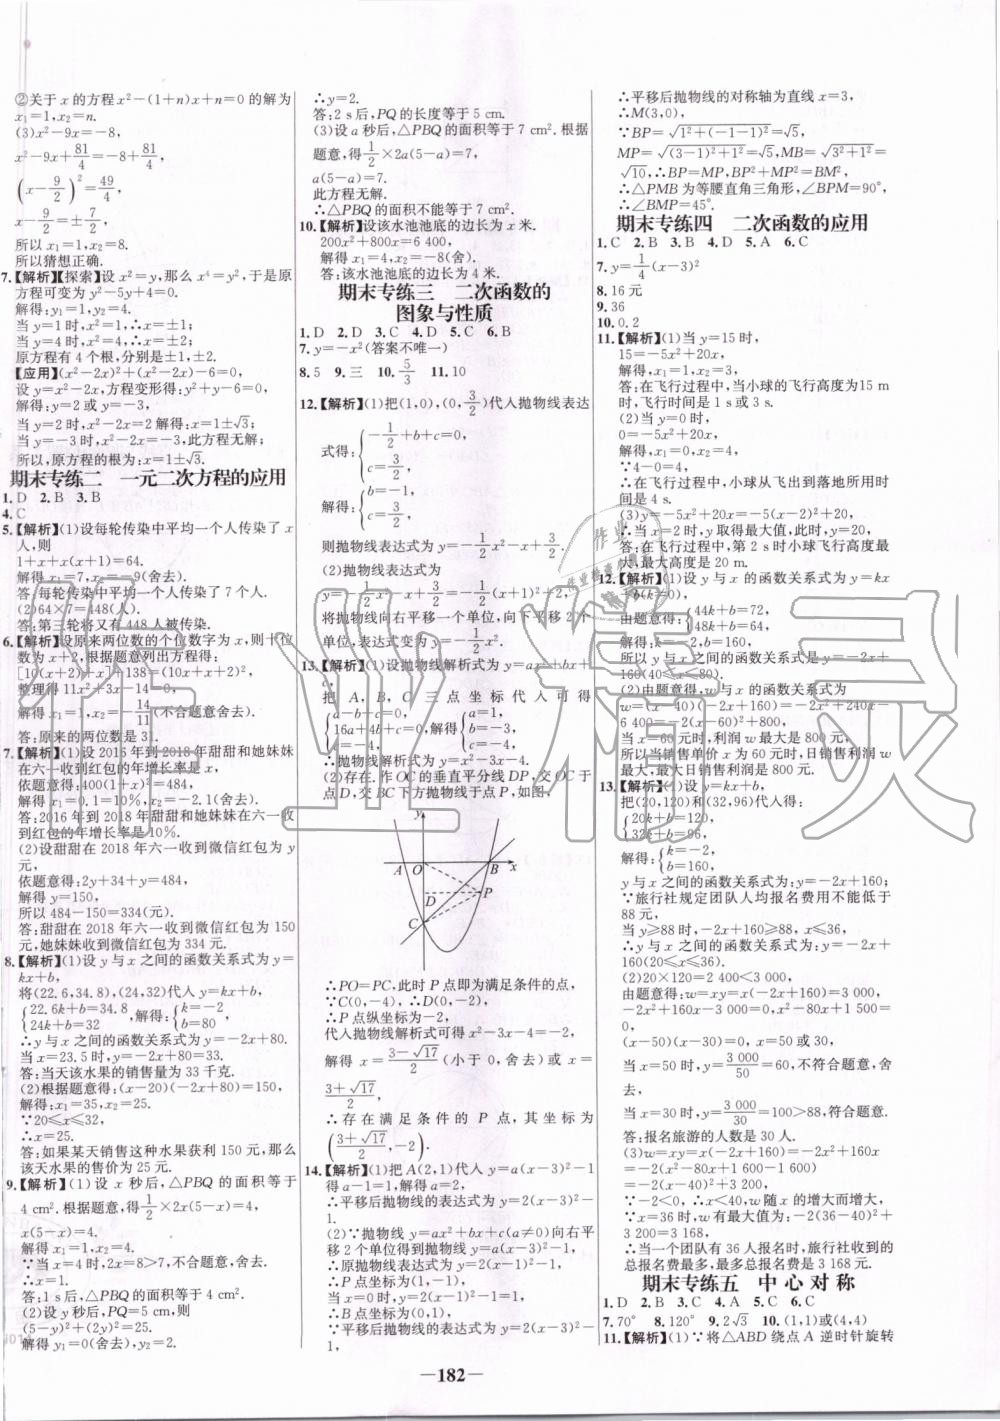 ②关于 x 的方程 x²-(1+n)x+n=0 的解为
x₁=1,x₂=n.
(3)x²-9x=-8,
x²-9x+81/4=-8+81/4,
(x-9/2)²=49/4
x-9/2=±7/2,
所以 x₁=1,x₂=8.
所以猜想正确.
7.【解析】【探索】设 x²=y,那么 x⁴=y²,于是原
方程可变为 y²-5y+4=0.
解得:y₁=1,y₂=4.
当 y=1 时,x²=1,∴x=±1;
当 y=4 时,x²=4,∴x=±2;
原方程有 4 个根,分别是±1,±2.
【应用】(x²-2x)²+(x²-2x)-6=0,
设 y=x²-2x,方程变形得:y²+y-6=0,
解得:y=2 或 y=-3,
当 y=2 时,x²-2x=2 解得:x=1±√3;
当 y=-3 时,x²-2x=-3,此方程无解.
所以,原方程的根为:x=1±√3.
期末专练二 一元二次方程的应用
1. D 2. B 3. B
4. C
5.【解析】(1)设每轮传染中平均一个人传染了 x
人,则
1+x+x(x+1)=64.
解得 x₁=7,x₂=-9(舍去).
答:每轮传染中平均一个人传染了 7 个人.
(2)64×7=448(人).
答:第三轮将又有 448 人被传染.
6.【解析】设原来两位数的个位数字为 x,则十位
数为 x+2,根据题意列出方程得:
[10(x+2)+x]²+138=(10x+x+2)².
整理得 11x²+3x-14=0,
解得 x₁=1,x₂=-14/11(不合题意舍去).
答:原来的两位数是 31.
7.【解析】(1)设 2016 年到 2018 年甜甜和她妹妹
在六一收到红包的年增长率是 x,
依题意得:400(1+x)²=484,
解得 x₁=0.1=10%,x₂=-2.1(舍去).
答:2016 年到 2018 年甜甜和她妹妹在六一收
到红包的年增长率是 10%.
(2)设甜甜在 2018 年六一收到微信红包为 y
元,
依题意得:2y+34+y=484,
解得 y=150,
所以 484-150=334(元).
答:甜甜在 2018 年六一收到微信红包为 150
元,她妹妹收到微信红包为 334 元.
8.【解析】(1)设 y 与 x 之间的函数关系式为 y=
kx+b,
将(22.6,34.8),(24,32)代入 y=kx+b,得
{22.6k+b=34.8, 24k+b=32 ,解得:{k=-2 b=80
∴y 与 x 之间的函数关系式为 y=-2x+80.
当 x=23.5 时,y=-2x+80=33.
答:当天该水果的销售量为 33 千克.
(2)根据题意得:(x-20)(-2x+80)=150,
解得:x₁=35,x₂=25.
∵20≤x≤32,
∴x=25.
答:如果某天销售这种水果获利 150 元,那么
该天水果的售价为 25 元.
9.【解析】(1)设 x 秒后,△PBQ 的面积等于
4 cm²,根据题意得:1/2×2x(5-x)=4,
x(5-x)=4.
解得 x₁=1,x₂=4.
∵当 x=4 时,2x=8>7,不合题意,舍去.
∴x=1.
答:1 s后,△PBQ 的面积等于 4 cm².
(2)设 y 秒后,PQ=5 cm,则
(5-y)²+(2y)²=25.
解得 y₁=0(舍去),y₂=2.
∴y=2.
答:2 s 后,PQ 的长度等于 5 cm.
(3)设 a 秒后,△PBQ 的面积等于 7 cm². 根据
题意,得1/2×2a(5-a)=7,
a(5-a)=7.
此方程无解.
∴△PBQ 的面积不能等于 7 cm².
10.【解析】设该水池池底的边长为 x 米.
200x²+800x=6 400,
解得:x₁=4,x₂=-8(舍去).
答:该水池池底的边长为 4 米.
期末专练三 二次函数的
图象与性质
1. D 2. D 3. C 4. D 5. C 6. B
7. y=-x²(答案不唯一)
8. 5 9. 三 10. 5/3 11. 10
12.【解析】(1)把(1,0),(0,3/2)代入抛物线表达
式得:{-1/2+b+c=0, c=3/2,
解得:{b=-1 c=3/2,
则抛物线表达式为 y=-1/2x²-x+3/2.
(2)抛物线表达式为
y=-1/2x²-x+3/2=-1/2(x+1)²+2,
将抛物线向右平移一个单位,向下平移 2 个
单位,表达式变为 y=-1/2x².
13.【解析】(1)设抛物线解析式为 y=ax²+bx+
c,
把 A,B,C 三点坐标代入可得
{a-b+c=0, 16a+4b+c=0, c=-4, 解得{a=1, b=-3, c=-4.
∴抛物线解析式为 y=x²-3x-4;
(2)存在. 作 OC 的垂直平分线 DP,交 OC 于
点 D,交 BC 下方抛物线于点 P,如图,
y
A O B x
D P
C
∴PO=PC,此时 P 点即为满足条件的点.
∵C(0,-4),∴D(0,-2).
∴P 点纵坐标为-2.
代入抛物线解析式可得 x²-3x-4=-2,
解得 x=(3-√17)/2(小于 0,舍去)或 x=
(3+√17)/2.
∴存在满足条件的 P 点,其坐标为
((3+√17)/2,-2).
14.【解析】(1)把 A(2,1)代入 y=a(x-3)²-1
得 a-1=1,解得 a=2.
∴平移后抛物线的表达式为 y=2(x-3)²-1.
(2)∵抛物线 y=ax²+bx+c(a≠0)向右平
移 2 个单位得到抛物线 y=2(x-3)²-1,
∴原抛物线表达式为 y=2(x-1)²-1,
当 x=0 时,y=2(0-1)²-1=1.
∴B 点坐标为(0,1).
∵平移后抛物线的表达式为 y=2(x-3)²-1,
∴平移后抛物线的对称轴为直线 x=3,
∴M(3,0),
∵BP=√(1²+(-1-1)²)=√5,
MP=√((3-1)²+1²)=√5,MB=√(3²+1²)=
√10,∴BP=MP,BP²+MP²=MB²,
∴△PMB 为等腰直角三角形,∠BPM=90°,
∴∠BMP=45°.
期末专练四 二次函数的应用
1. C 2. B 3. B 4. D 5. A 6. C
7. y=1/4(x-3)²
8. 16 元
9. 36
10. 0.2
11.【解析】(1)当 y=15 时,
15=-5x²+20x,
解得,x₁=1,x₂=3,
答:在飞行过程中,当小球的飞行高度为15 m
时,飞行时间是 1 s或 3 s.
(2)当 y=0 时,
0=-5x²+20x,
解得,x₁=0,x₂=4,
∵4-0=4,
∴在飞行过程中,小球从飞出到落地所用时
间是 4 s.
(3)y=-5x²+20x=-5(x-2)²+20,
∴当 x=2 时,y 取得最大值,此时,y=20,
答:在飞行过程中,第 2 s时小球飞行高度最
大,最大高度是 20 m.
12.【解析】(1)设 y 与 x 的函数关系式为 y=kx
+b(k≠0),
由题意得:{44k+b=72, 48k+b=64,
解得:k=-2,b=160,
所以 y 与 x 之间的函数关系式是 y=-2x+
160(40≤x≤80).
(2)由题意得,w 与 x 的函数关系式为
w=(x-40)(-2x+160)=-2x²+240x-
6 400=-2(x-60)²+800,
当 x=60 元时,利润 w 最大是 800 元,
所以当销售单价 x 为 60 元时,日销售利润 w
最大,最大日销售利润是 800 元.
13.【解析】(1)设 y=kx+b,
把(20,120)和(32,96)代入得:
{20k+b=120, 32k+b=96,
解得:{k=-2, b=160,
y 与 x 之间的函数关系式为:y=-2x+160;
∵旅行社规定团队人均报名费用不能低于
88 元,
当 y≥88 时,-2x+160≥88,x≤36,
∴y 与 x 之间的函数关系式为:y=-2x+
160(20≤x≤36).
(2)20×120=2 400<3 000,
由题意得:w=xy=x(-2x+160)=3 000,
-2x²+160x-3 000=0,x²-80x+1 500=
0,
(x-50)(x-30)=0,x=50 或 30,
当 x=50 时,y=3 000/50=60,不符合题意,舍去,
当 x=30 时,y=3 000/30=100>88,符合题意.
答:报名旅游的人数是 30 人.
(3)w=xy=x(-2x+160)=-2x²+160x
=-2(x²-80x+1 600-1 600)
=-2(x-40)²+3 200,
∵-2<0,∴x<40,w 随 x 的增大而增大,
∵x=36 时,w 有最大值为:-2(36-40)²+
3 200=3 168,
∴当一个团队有 36 人报名时,旅行社收到的
总报名费最多,最多总报名费是 3 168 元.
期末专练五 中心对称
1. D 2. B 3. C 4. A 5. C 6. C
7. 70° 8. 120° 9. 2√3 10. (1,1)或(4,4)
11.【解析】(1)∵将△ABD 绕点 A 逆时针旋转
—182—
作业精灵